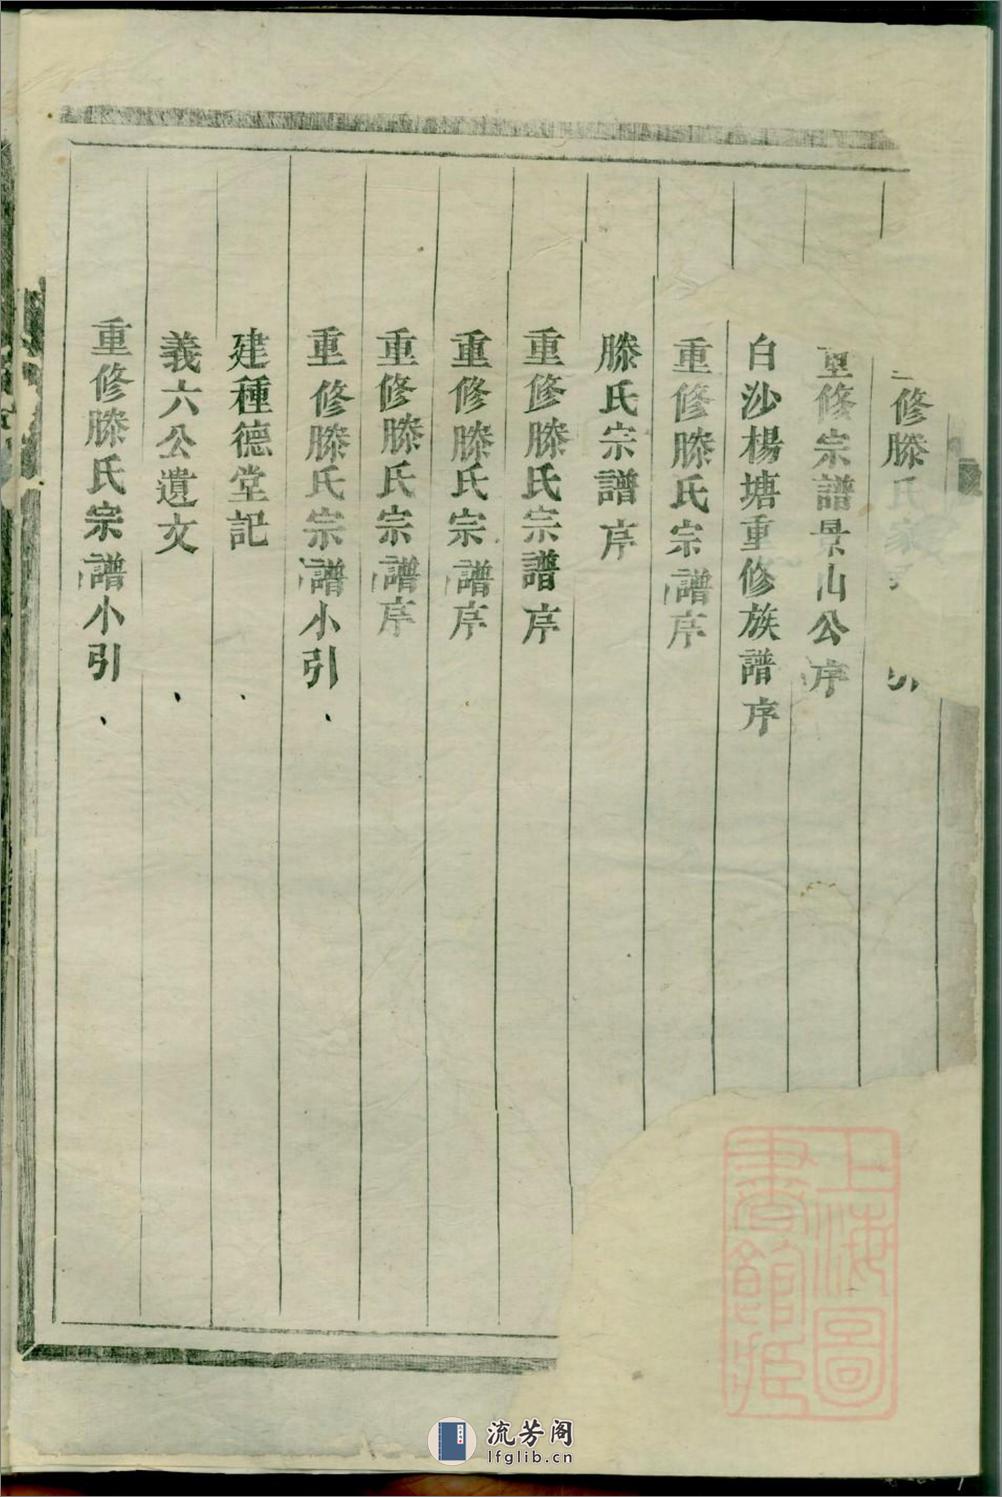 修滕氏
重修宗譜景山公序
白沙楊塘重修族譜序
重修滕氏宗譜序
滕氏宗譜序
重修滕氏宗譜序
重修滕氏宗譜序
重修滕氏宗譜序
重修滕氏宗譜小引
建種德堂記
義六公遺文
重修滕氏宗譜小引
上海圖
書館藏
流芳阁
lfglib.cn